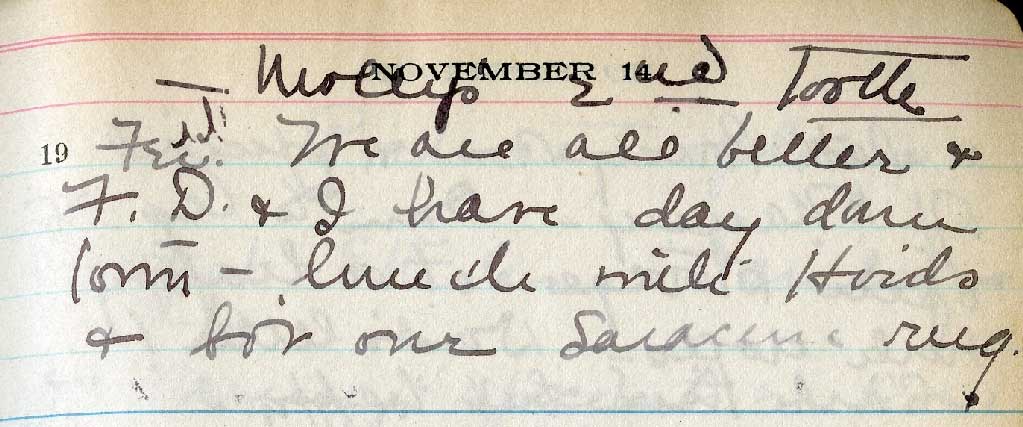 — Molly's 2nd Tooth
NOVEMBER 14
19 Fri. We are all better &
F. D. & I have day down
town – lunch with Hoids
& for our rug.